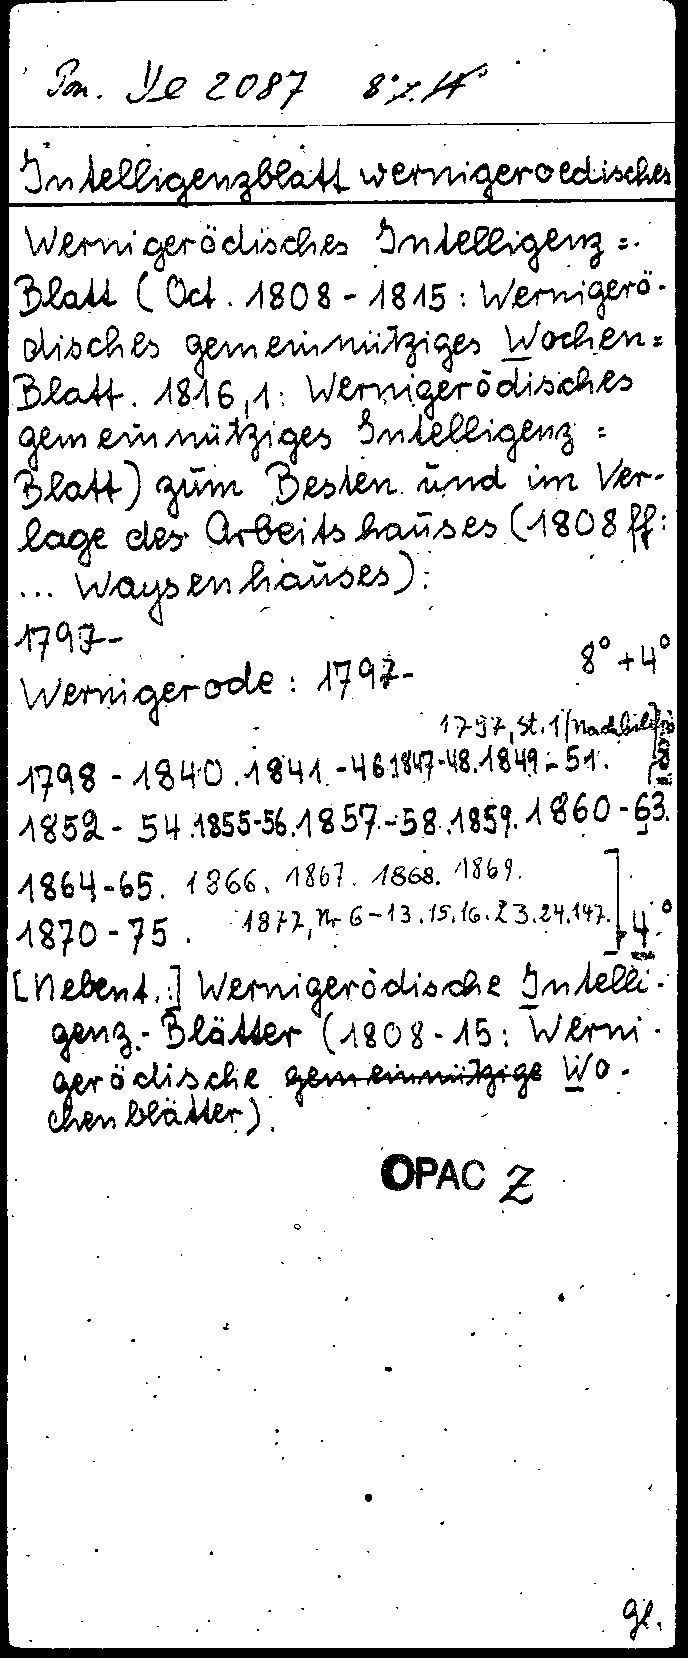 Pon. Ye 2087 8° 
Intelligenzblatt wernigeroedisches
Wernigerödisches Intelligenz=
Blatt (Oct. 1808-1815: Wernigerö-
disches gemeinnütziges Wochen=
Blatt. 1816,1: Wernigerödisches
gemeinnütziges Intelligenz=
Blatt) zum Besten und im Ver-
lage des Arbeitshauses (1808 ff:
... Waysenhauses).
1797-
8° + 4°
Wernigerode: 1797-
1797, St. 1 (Nachbild)
1798-1840. 1841.-46. 1847-48. 1849-51.
1852-54. 1855-56. 1857-58. 1859. 1860-63.
1864-65. 1866. 1867. 1868. 1869.
1870-75. 1877, Nr 6-13. 15. 16. 23. 24. 147. ] 4°
[Nebent.:] Wernigerödische Intelli-
genz-Blätter (1808-15: Werni-
gerödische gemeinnützige Wo-
chenblätter).
OPAC Z
gl.